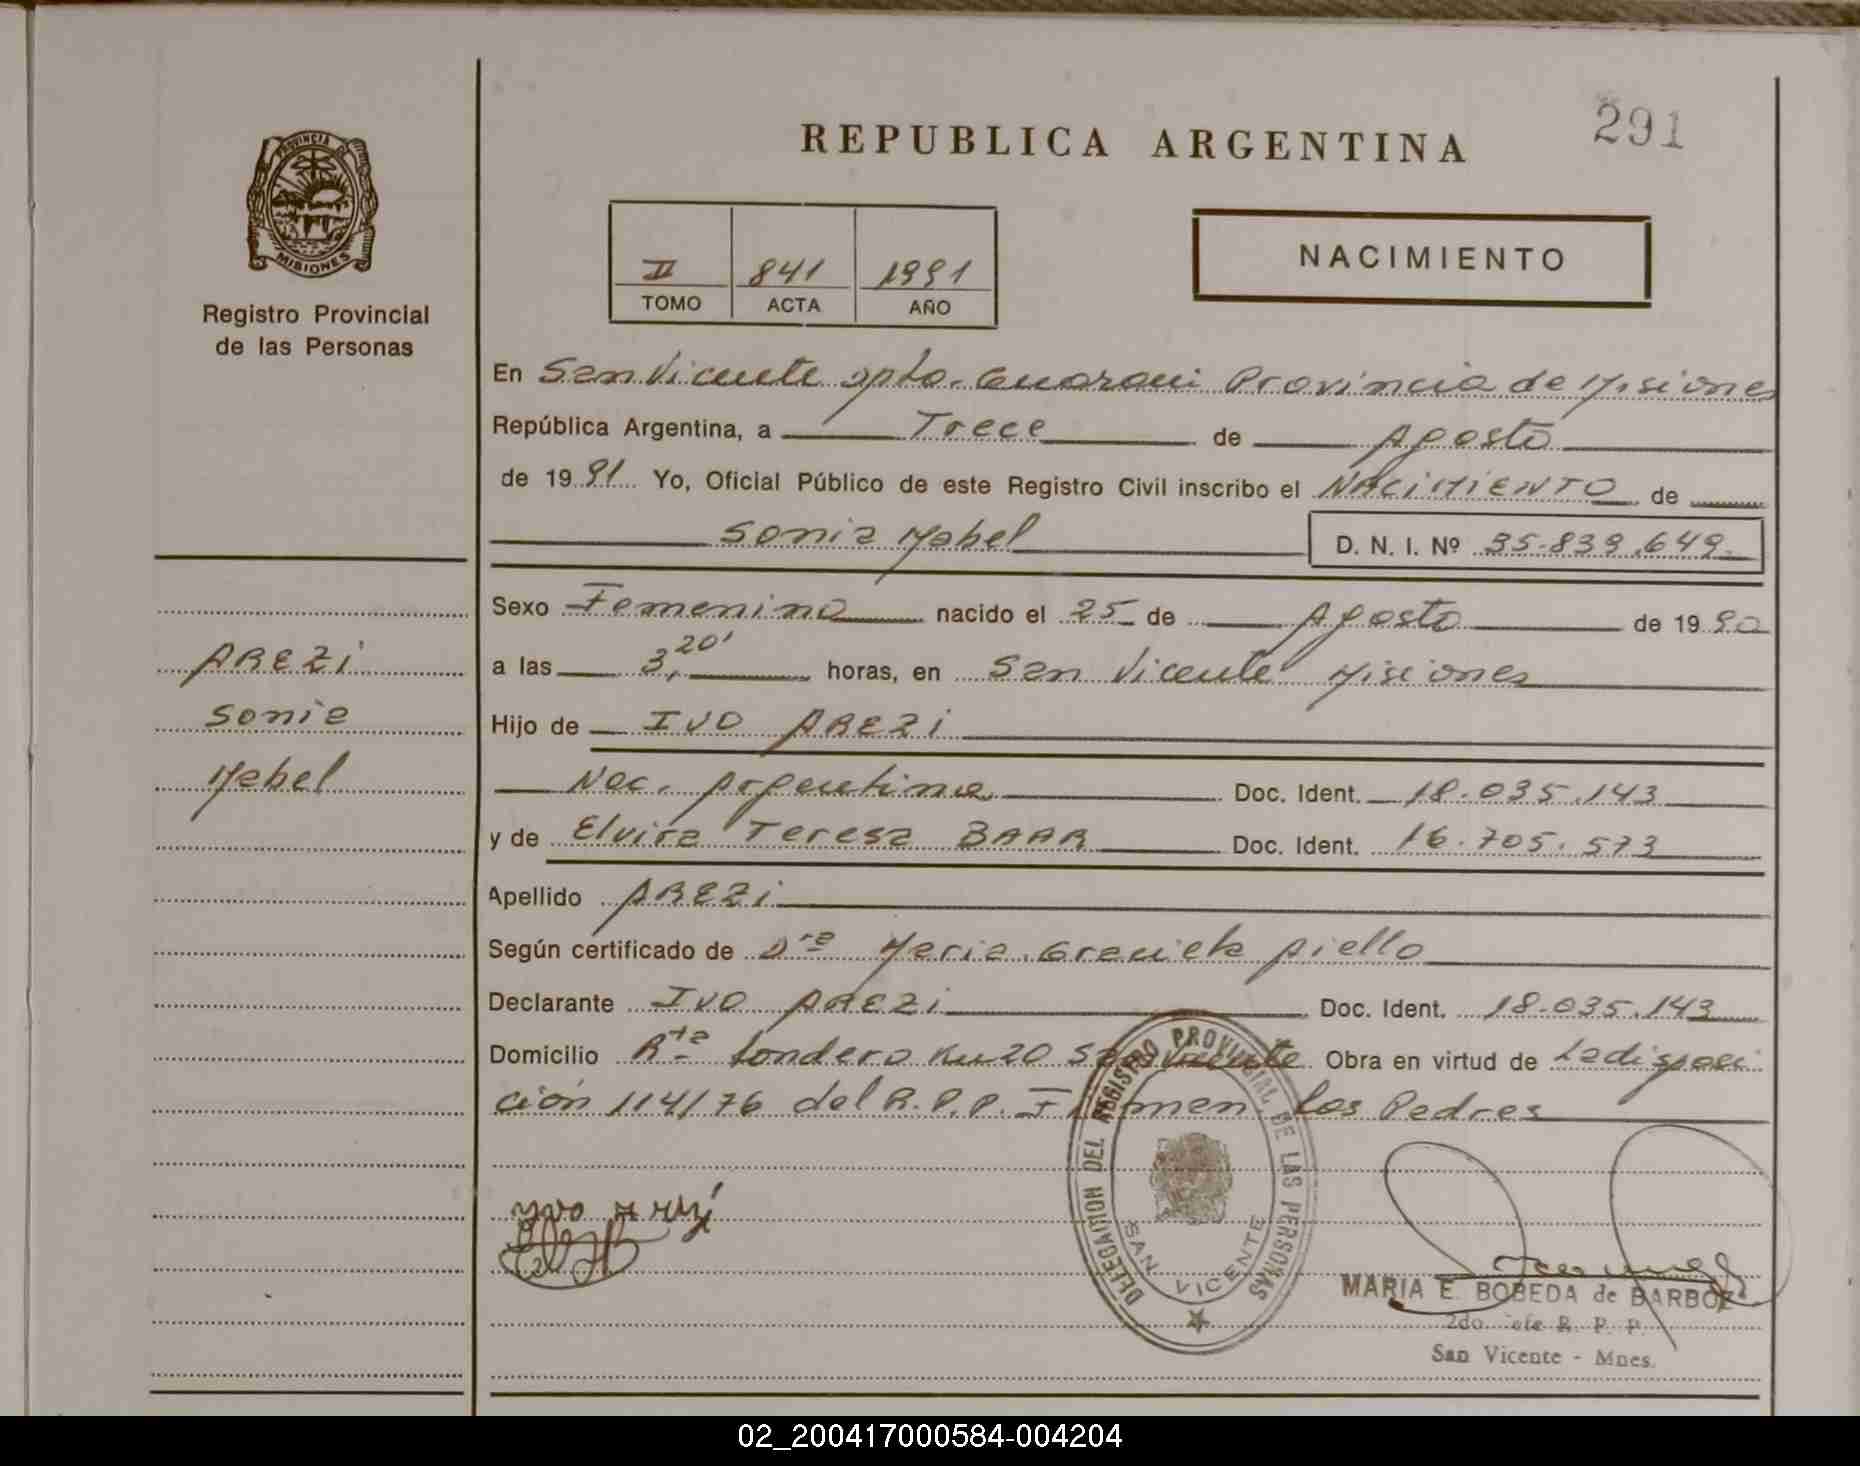 291
REPUBLICA ARGENTINA
PROVINCIA DE
MISIONES
Registro Provincial
de las Personas
II 841 1991
TOMO ACTA AÑO
NACIMIENTO
En San Vicente Dpto. Guarani Provincia de Misiones
República Argentina, a Trece de Agosto
de 1991 Yo, Oficial Público de este Registro Civil inscribo el NACIMIENTO de
Sonia Mabel D. N. I. Nº 35.839.649.
Sexo Femenino nacido el 25 de Agosto de 1990
a las 3,20' horas, en San Vicente Misiones
Hijo de IVO AREZI
Nac. Argentina Doc. Ident. 18.035.143
y de Elvira Teresa BAAR Doc. Ident. 16.705.573
Apellido AREZI
Según certificado de Dra Maria Graciela Aiello
Declarante IVO AREZI Doc. Ident. 18.035.143
Domicilio Rta Londero Km 20 San Vicente Obra en virtud de La disposi
ción 114/76 del R.P.P. Firmen los Padres
AREZI
Sonia
Mabel
DELEGACION DEL REGISTRO PROVINCIAL DE LAS PERSONAS
SAN VICENTE
MARIA E. BOBEDA de BARBOZ
2do Jefe R. P. P.
San Vicente - Mnes.
02_200417000584-004204